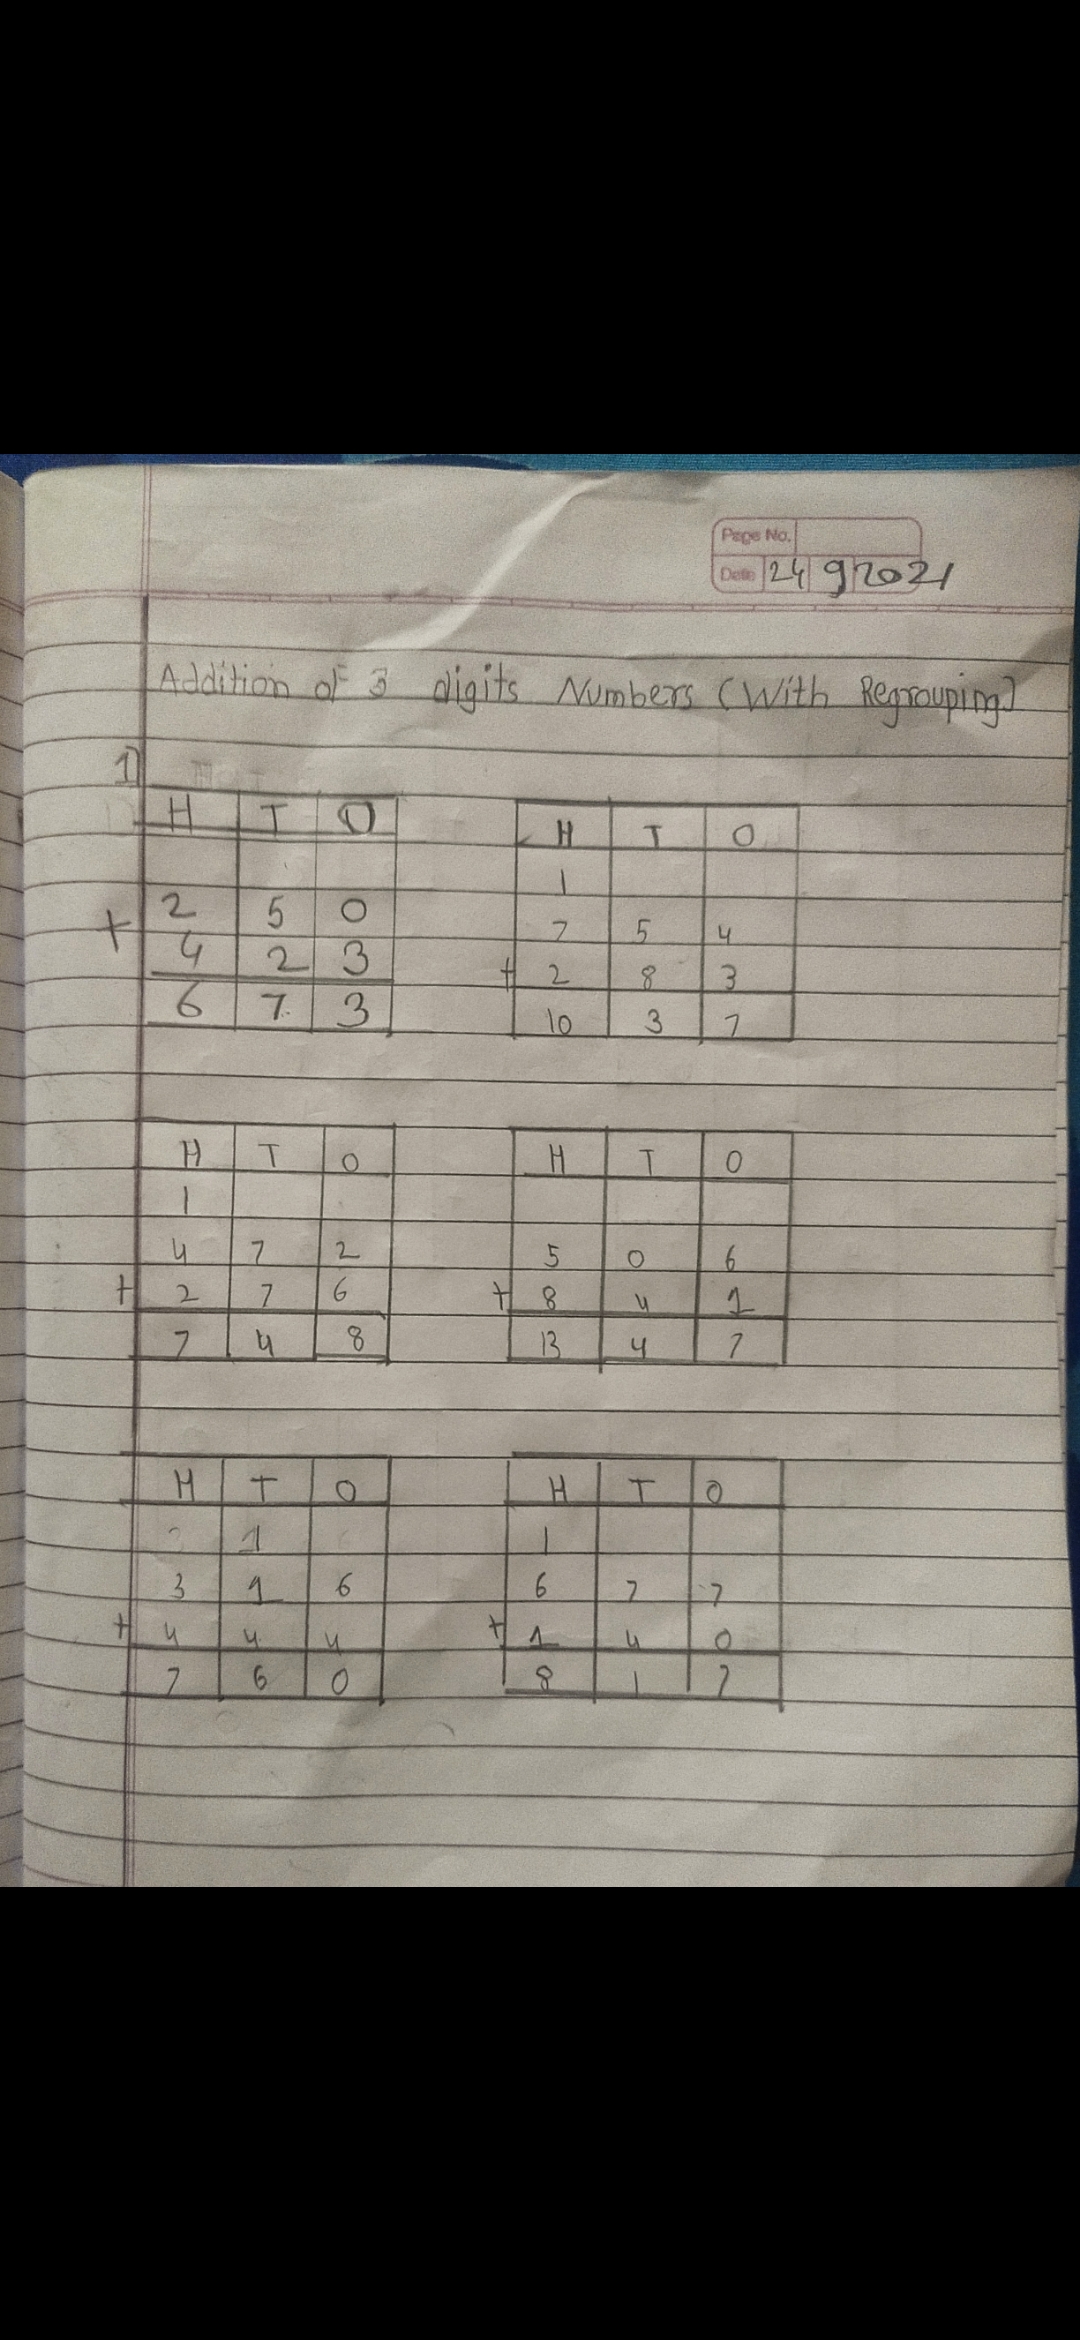 Page No.
Date 24 9 2021
Addition of 3 digits Numbers (With Regrouping)
1)
H T O
2 5 0
+ 4 2 3
6 7 3
H T O
1
7 5 4
+ 2 8 3
10 3 7
H T O
1
4 7 2
+ 2 7 6
7 4 8
H T O
5 0 6
+ 8 4 1
13 4 7
H T O
1
3 1 6
+ 4 4 4
7 6 0
H T O
1
6 7 7
+ 1 4 0
8 1 7